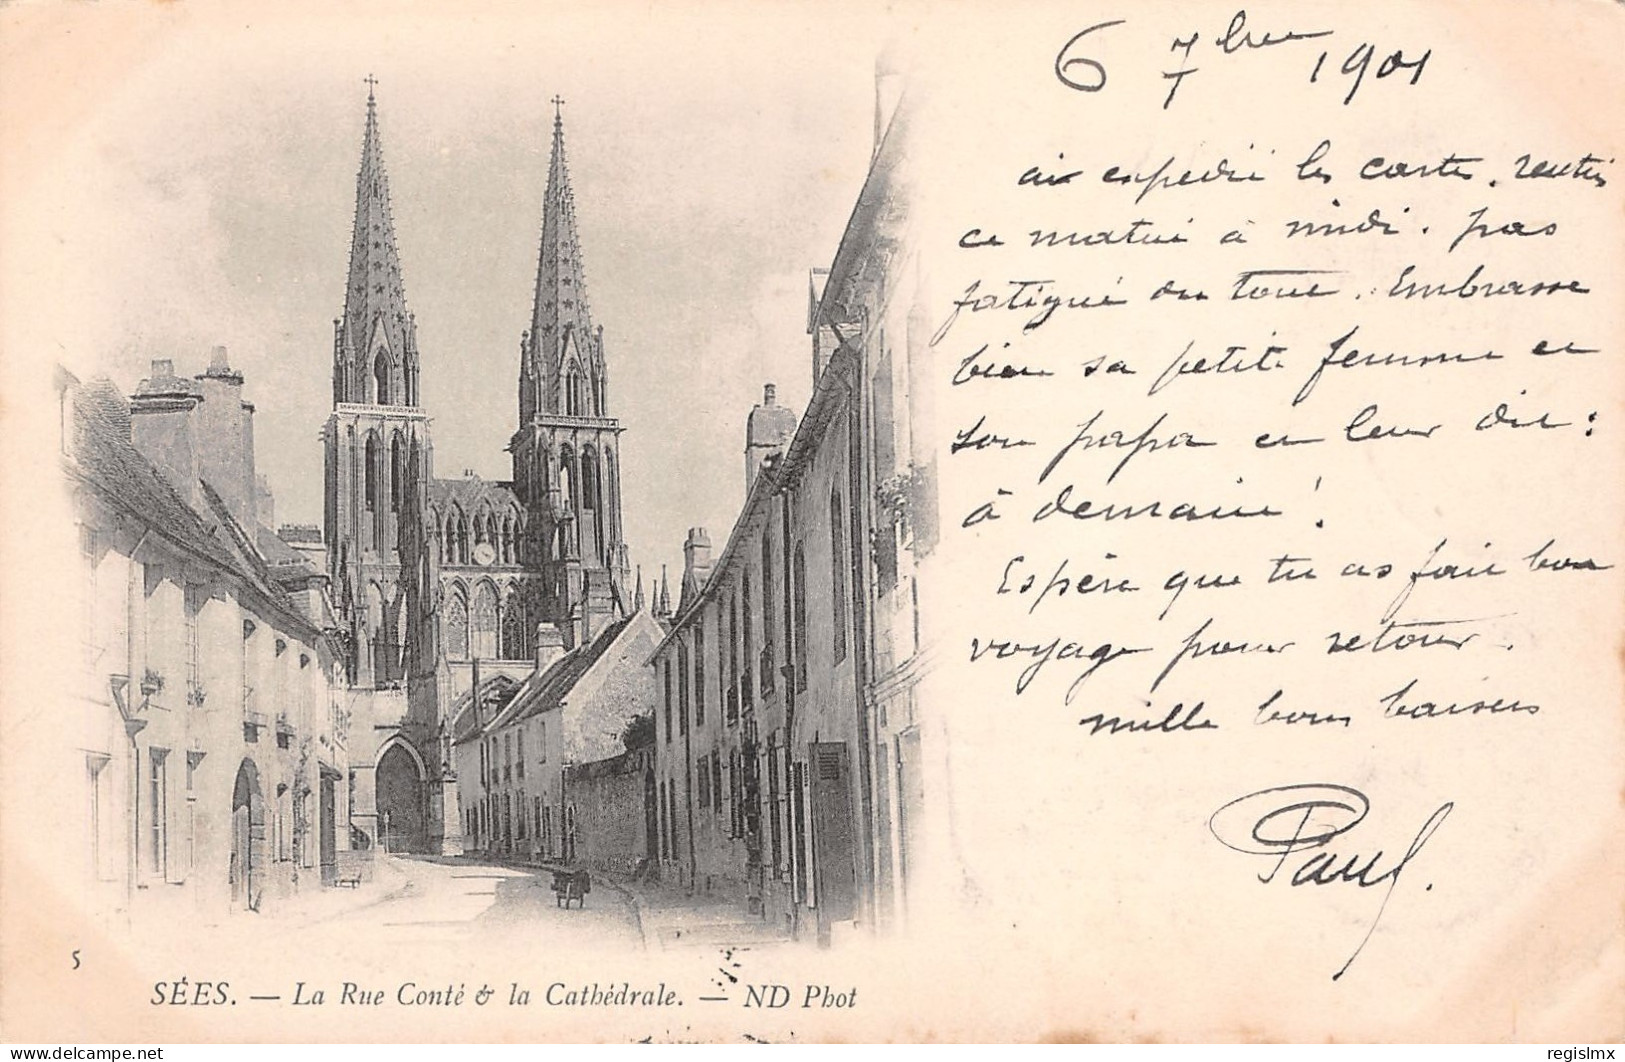 6 7bre 1901
ai expédié les cartes. rentré
ce matin à midi. pas
fatigué du tout. Embrasse
bien sa petite femme et
son papa et leur dit :
à demain !
Espère que tu as fait bon
voyage pour retour.
mille bons baisers
Paul.
5
SÉES. — La Rue Conté & la Cathédrale. — ND Phot
delcampe.net
regislmx